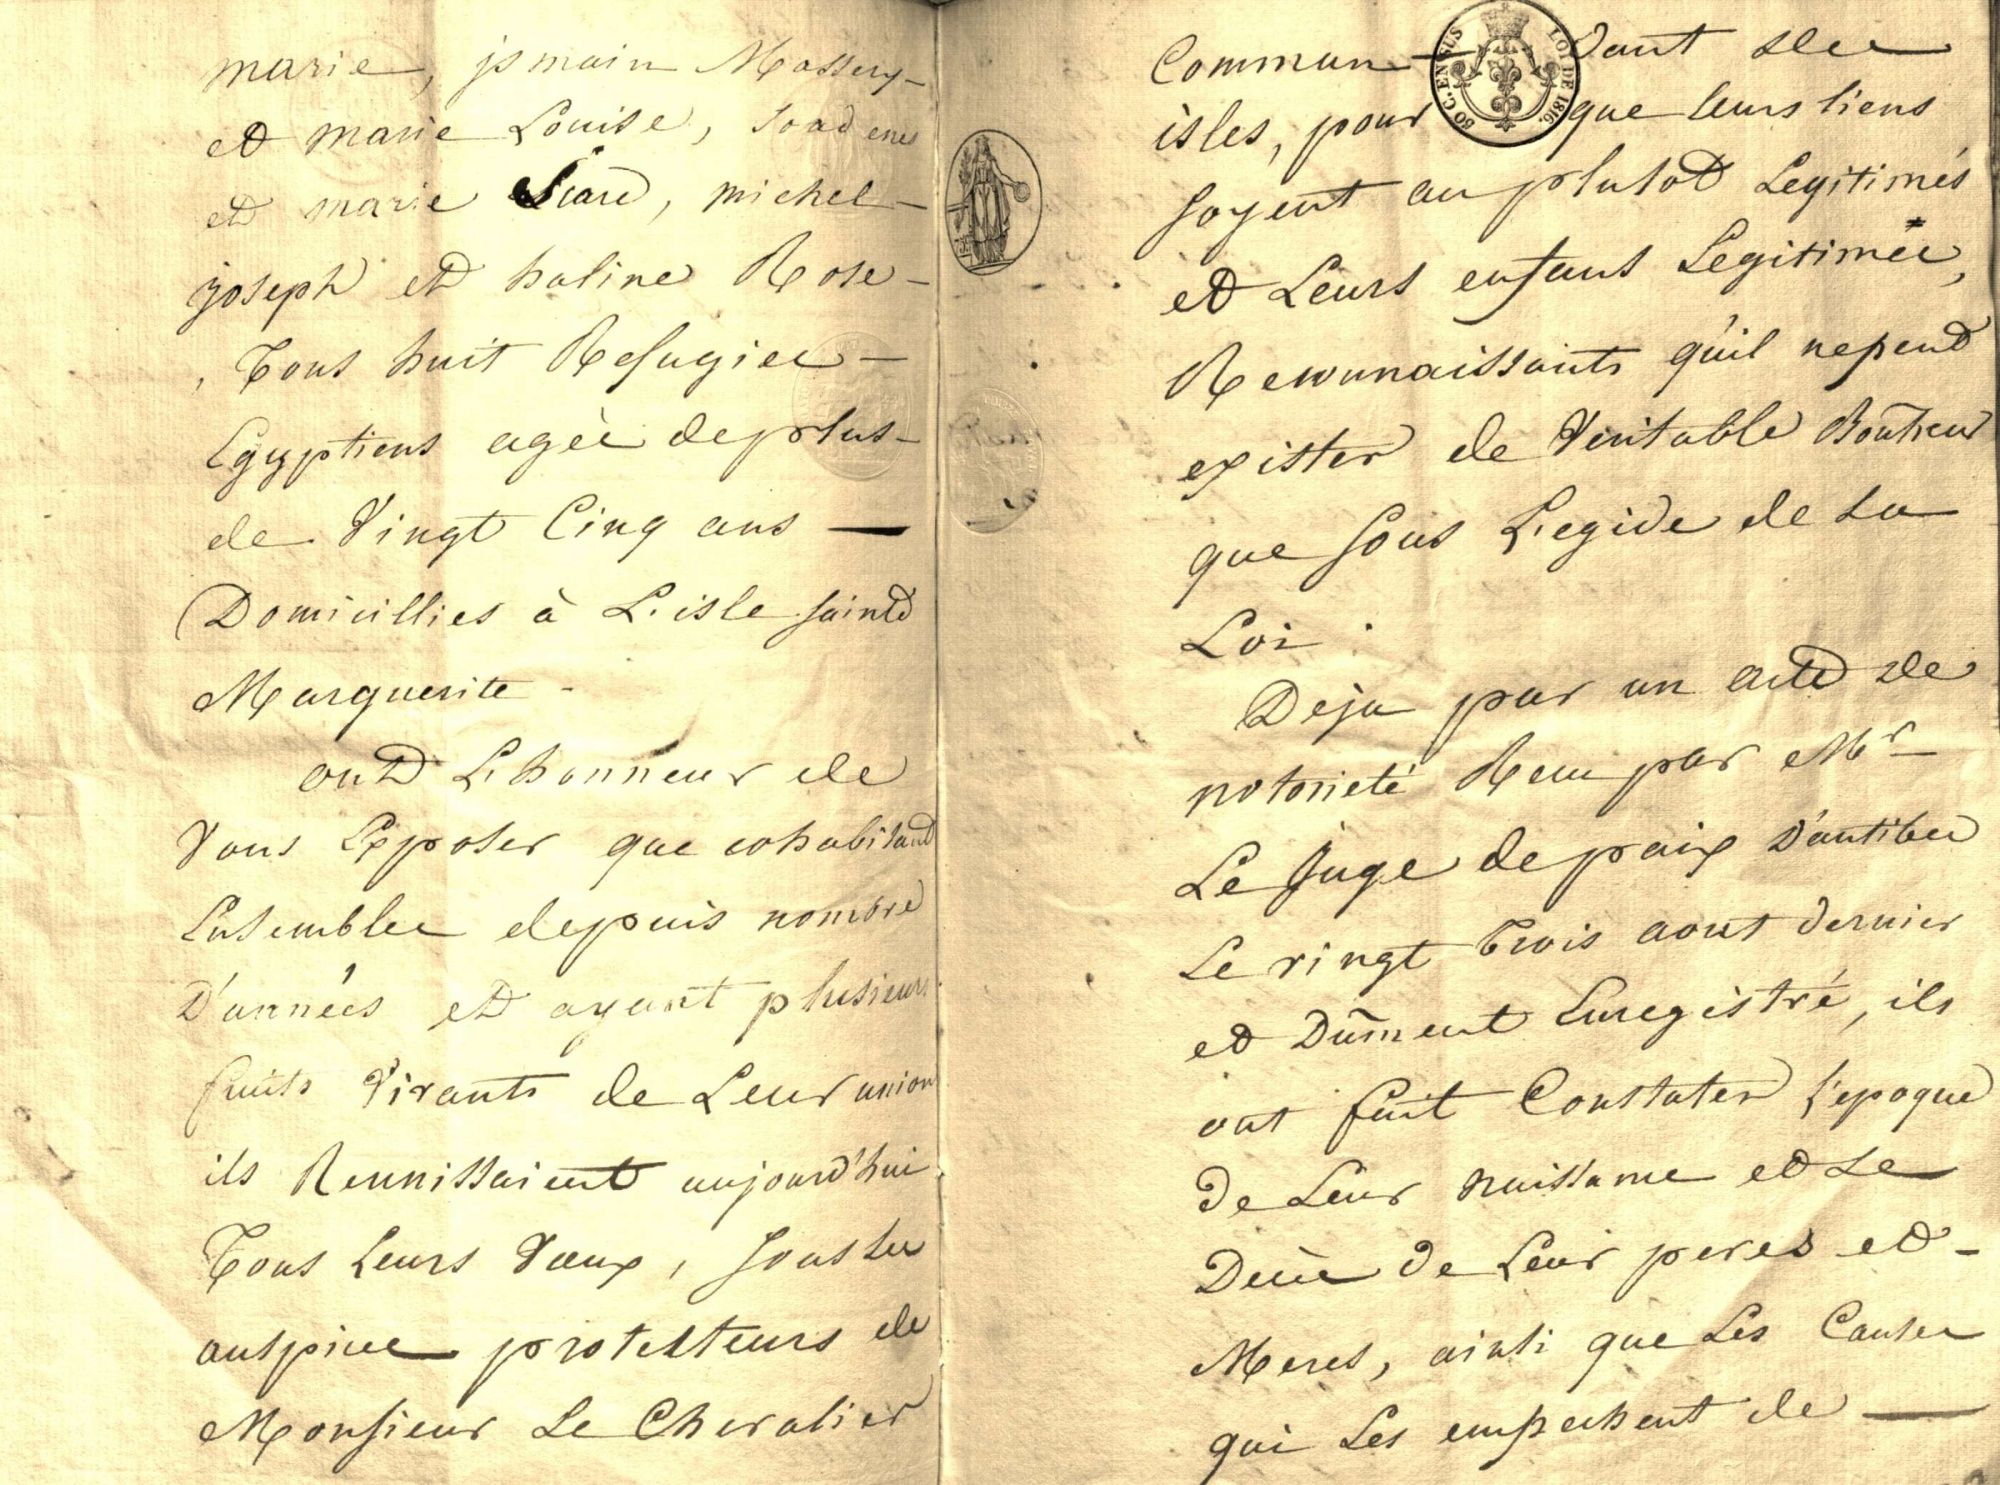 marie, jsmain Massery-
et marie Louise, Soad enes
et marie Siard, michel-
joseph et haline Rose-
, Tous huit Refugiee-
Egyptiens ageé deplus-
de Vingt Cinq ans —
Domicillies à L'isle sainte
Marguerite -
ont L'honneur de
Vous Exposer que cohabitant
Ensemblee depuis nombre
D'années et ayant plusieurs
fruits Vivants de Leur union
ils Reunissaient aujourd'hui
Tous Leurs Vœux, sous les
auspice protecteurs de
Monsieur Le Chevalier
Comman-dant dee
isles, pour que leurs liens
soyent au plutot Legitimés
et Leurs enfans Legitimée,
Reconnaissants qu'il nepeut
exister de Veritable Bonheur
que sous L'egide de La
Loi.
Deja par un acte de
notorieté Recu par Mr
Le Juge de paix D'antibee
Le vingt Trois aout dernier
et Dûment Enregistré, ils
ont fait Constater l'epoque
de Leur naissance et Le
Décée de Leur peres et-
Meres, ainsi que Les Causee
qui Les empechent de —
50 C. EN SUS
LOI DE 1816.